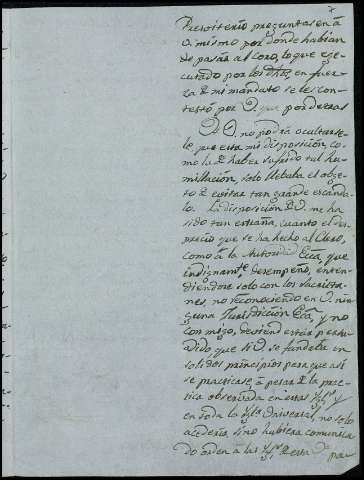 Presviterio, preguntasen á
V. mismo por donde habian
de pasar al coro, lo que exe-
cutado por los dhos, en fuer-
za de mi mandato se les con-
textó por V. que por detras
A V. no podrá ocultarse
le, que esta mi disposicion, co
mo la de haber sufrido tal hu
millacion, solo llebaba el obge-
to de evitar tan grande escanda-
lo. La disposicion de V. me ha
sido tan estraña, cuanto el des-
precio que se ha hecho al Clero,
como á la Autorid. Ecca, que
indignamte. desempeño, enten-
diendose solo con los sacrista-
nes, no reconociendo en V. nin-
guna Jurisdiccion Ecca, y no
conmigo, deviendo estar persua
dido, que si V. se fundaba en
solidos principios para que asi
se practicase, á pesar de la prac-
tica observada en estas Ygs. y
en toda la Yga. Universal, no solo
accederia, sino hubiera comunica
do orden á las Ygs. de esta
pa